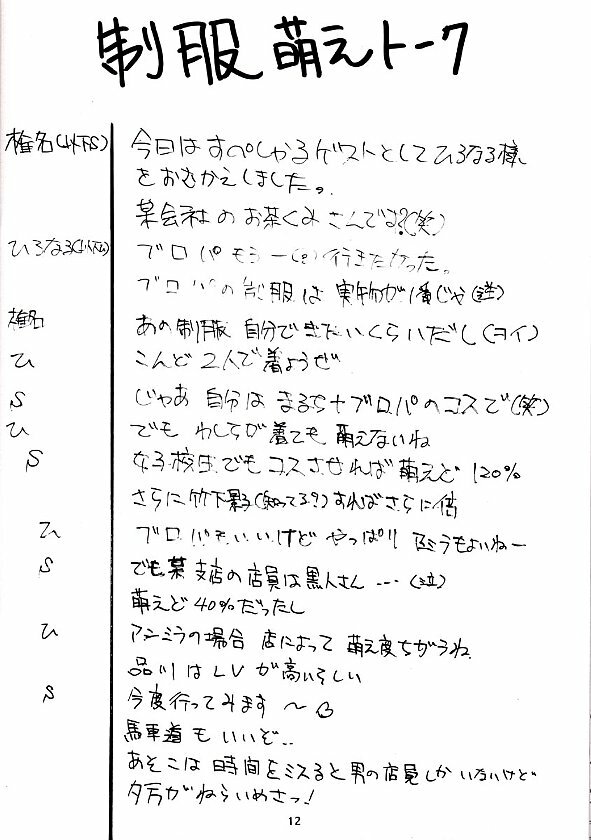 制服 萌えトーク
椎名(以下S) 今日はすぺしゃるゲストとしてひろなる様
をおむかえしました。
某会社のお茶くみさんでは?(笑)
ひろなる(以下ひ) ブロパもう一(?)行きたかった。
ブロパの制服は実物が1番じゃ(泣)
椎名 あの制服 自分できたいくらいだし(ヨイ)
ひ こんど2人で着ようぜ
S じゃあ 自分は まるち+ブロパのコスで(笑)
ひ でも わしらが着ても萌えないね
S 女子校生でもコスさせれば萌えど120%
さらに竹下影(知ってる?)すればさらに倍
ひ ブロパもいいけど やっぱり もよいねー
S でも某支店の店員は黒人さん…(泣)
萌えど40%だったし
ひ アンミラの場合 店によって 萌え度ちがうね
品川はLVが高いらしい
S 今度行ってみます~
馬車道もいいぞ..
あそこは時間をミスると男の店員しかいないけど
夕方がねらいめさっ!
12